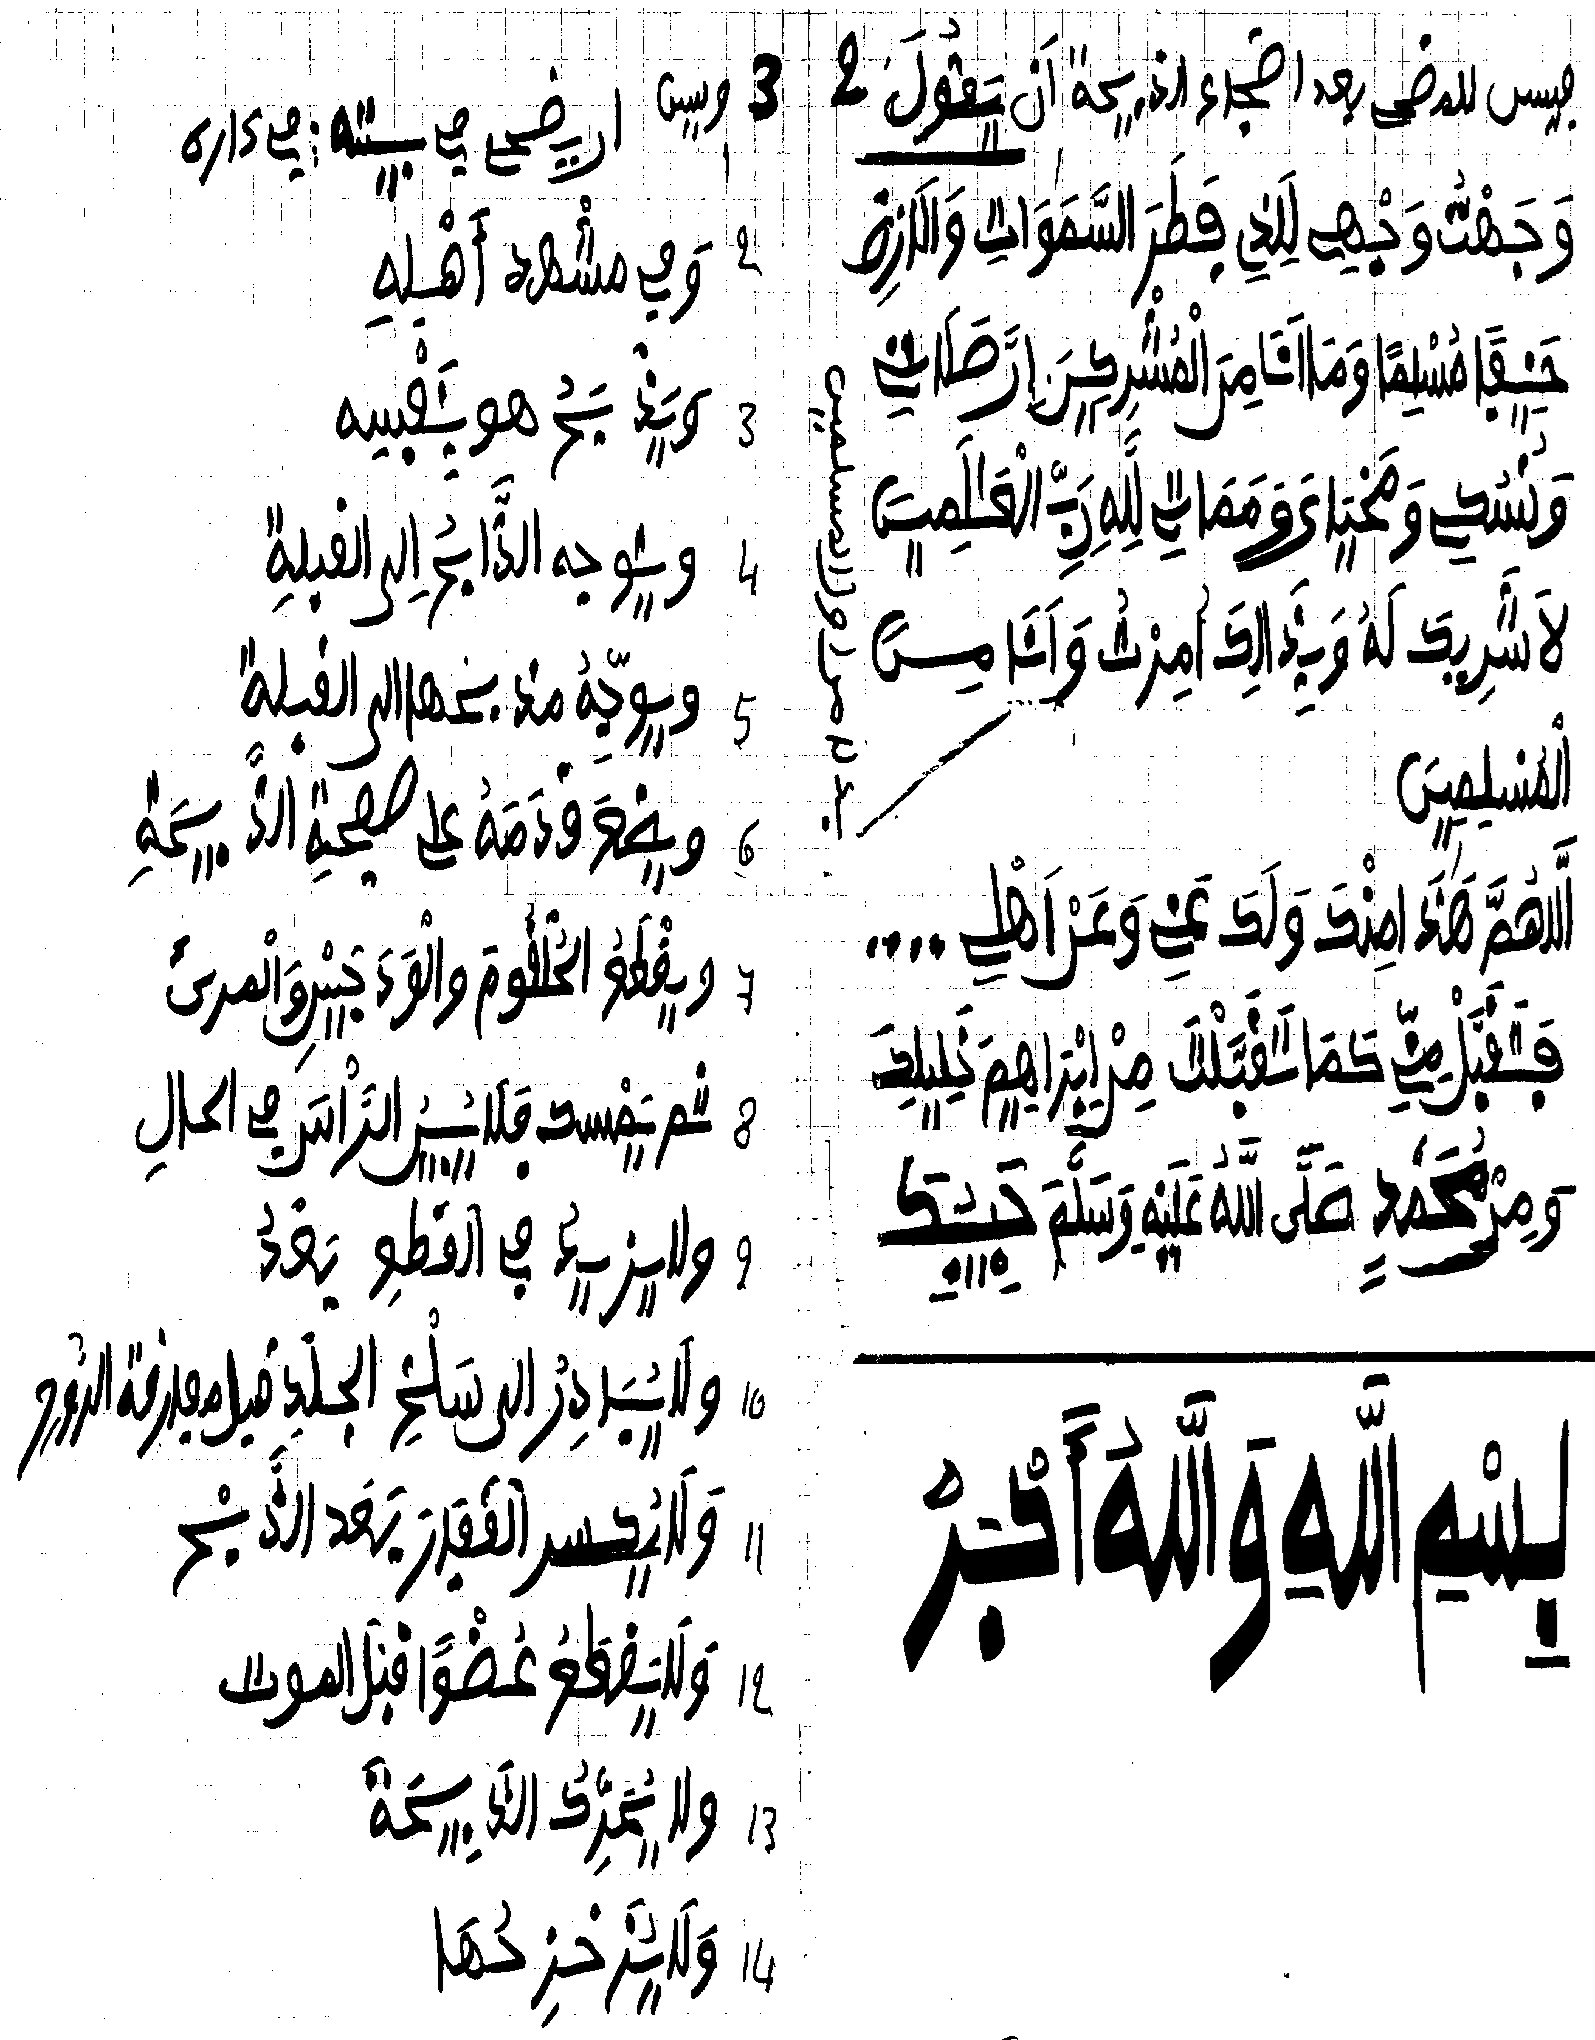 فيسن للمضحي بعد اضجاع الذبيحة أن يَقُولَ 2
وَجَّهْتُ وَجْهِي لِلَّذِي فَطَرَ السَّمَوَاتِ وَالَارْضَ
حَنِيفًا مُسْلِمًا وَمَا اَنَا مِنَ الْمُشْرِكِينَ إِنَّ صَلَاتِي
وَنُسُكِي وَمَحْيَايَ وَمَمَاتِي لِلَّهِ رَبِّ الْعَلَمِينَ
لاَ شَرِيكَ لَهُ وَبِذَالِكَ أُمِرْتُ وَاَنَا مِنَ
الْمُسْلِمِينَ
اَللَّهُمَّ هَذَا مِنْكَ وَلَكَ عَنِّي وَعَنْ اَهْلِي ....
فَتَقَبَّلْ مِنِّي كَمَا تَقَبَّلْتَ مِنْ اِبْرَاهِيمَ خَلِيلِكَ
وَمِنْ مُحَمَّدٍ صَلَّى اللَّهُ عَلَيْهِ وَسَلَّمَ حَبِيبِكَ
بِسْمِ اللَّهِ وَاللَّهُ أَكْبَرْ
المسلمين
3 ويسن
1 ان يضحي في بيته: في داره
2 وَفي مشْهد أَهْلِهِ
3 وَيَذْبَحُ هو بنَفْسِه
4 ويتوجه الذَّابحُ اِلى القبلةِ
5 ويوَجِّهُ مذبحها الى القبلة
6 ويضَعَ قَدَمَهُ على صفحةِ الذَّبيحَةِ
7 ويقْطَعُ الحُلْقُومَ والْوَدَجَيْنِ وَالْمرىءَ
8 ثم يَمْسك فلَا يُبينُ الرَّاْسَ في الحالِ
9 ولا يزيدُ في القطعِ بَعْدُ
10 ولَا يُبَادِرْ الى سَلْخِ الجلْدِ قبل مفارقة الرُّوحِ
11 وَلَا يُكسر الْفَقَارَ بَعْد الذَّبْح
12 وَلَا يَقْطَعُ عُضْوًا قبْلَ الموت
13 ولا يُحَرِّكُ الذَّبيحَةَ
14 وَلَا يُزَحْزِحُهَا